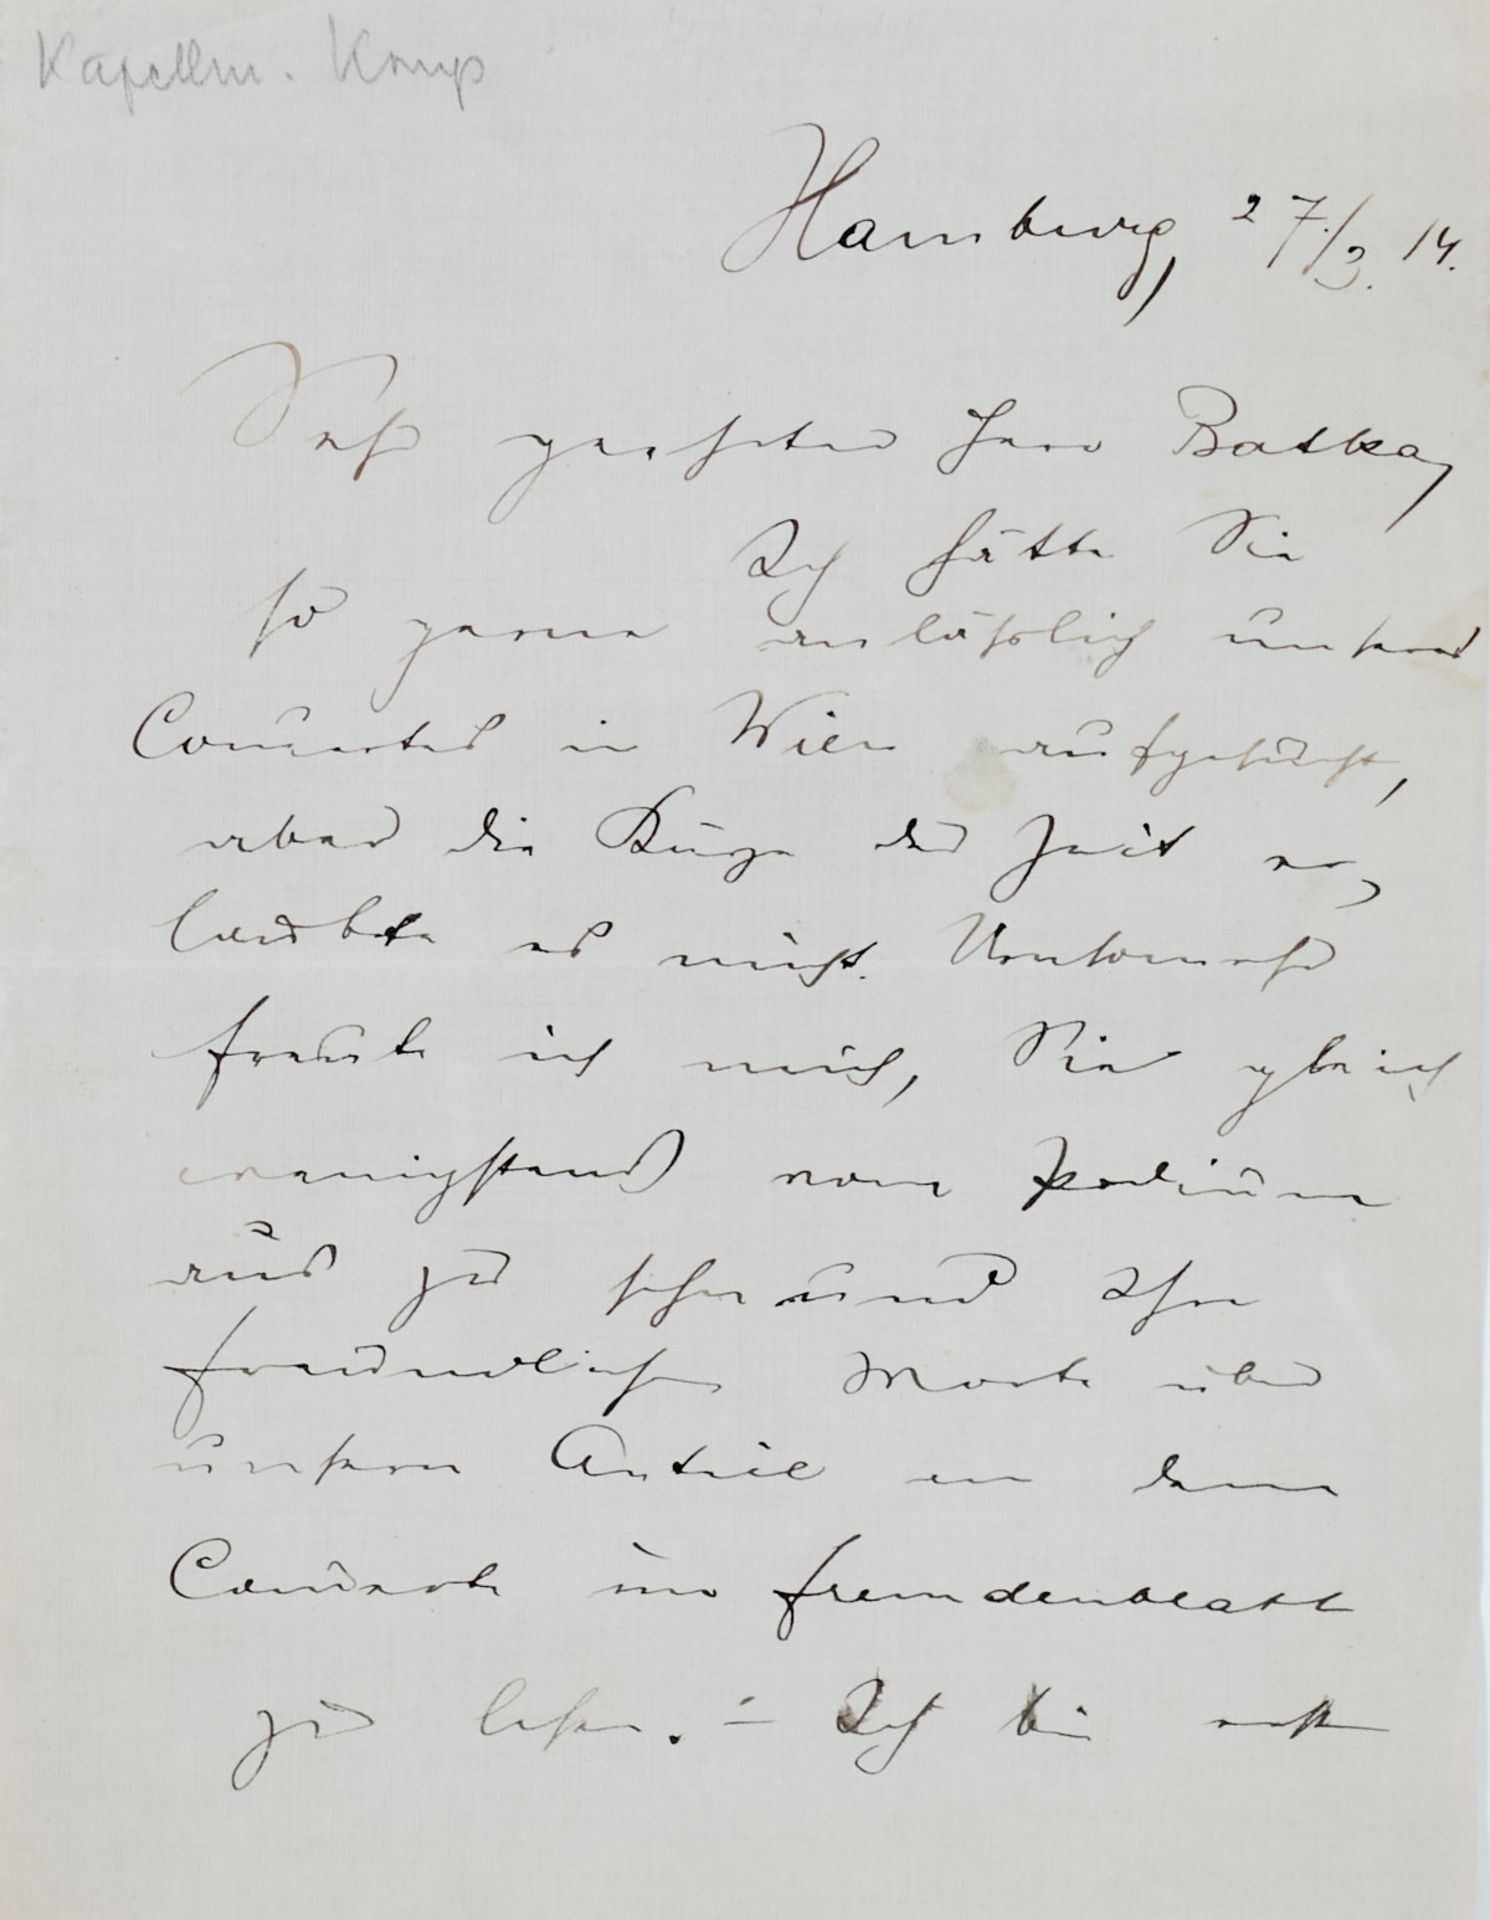 Kapellm.
Hamburg, 27./3. 14.
Sehr geehrter Herr Batka,
Ich hätte Sie
so gerne anläßlich unseres
Concertes in Wien aufgesucht,
aber die Kürze der Zeit er-
laubte es nicht. Umsomehr
freute ich mich, Sie gleich
wenigstens vom Podium
aus zu sehen und Ihre
freundlichen Worte über
unsern Anteil an dem
Concerte im Fremdenblatt
zu lesen. – Ich bin